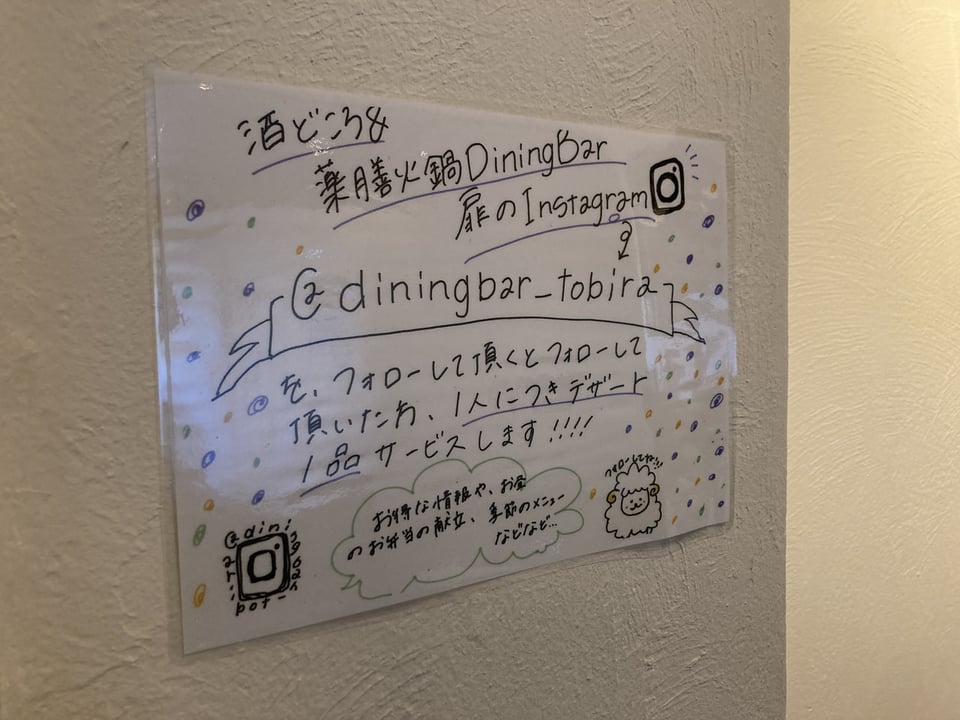 酒どころ&
薬膳火鍋DiningBar
扉のInstagram
@diningbar_tobira
を、フォローして頂くとフォローして
頂いた方、1人につきデザート
1品サービスします!!!!
お得な情報や、お昼
のお弁当の献立、季節のメニュー
などなど…
フォローしてね!!